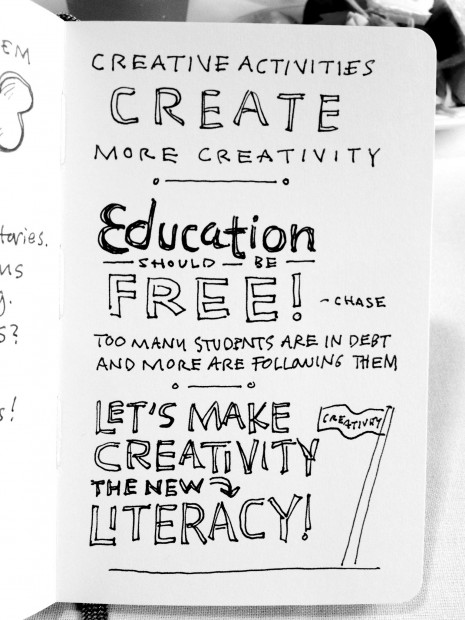 EM
tories.
ns
g.
s?
s!
CREATIVE ACTIVITIES
CREATE
MORE CREATIVITY
Education
SHOULD BE
FREE!
~CHASE
TOO MANY STUDENTS ARE IN DEBT
AND MORE ARE FOLLOWING THEM
LET'S MAKE
CREATIVITY
THE NEW
LITERACY!
CREATIVITY